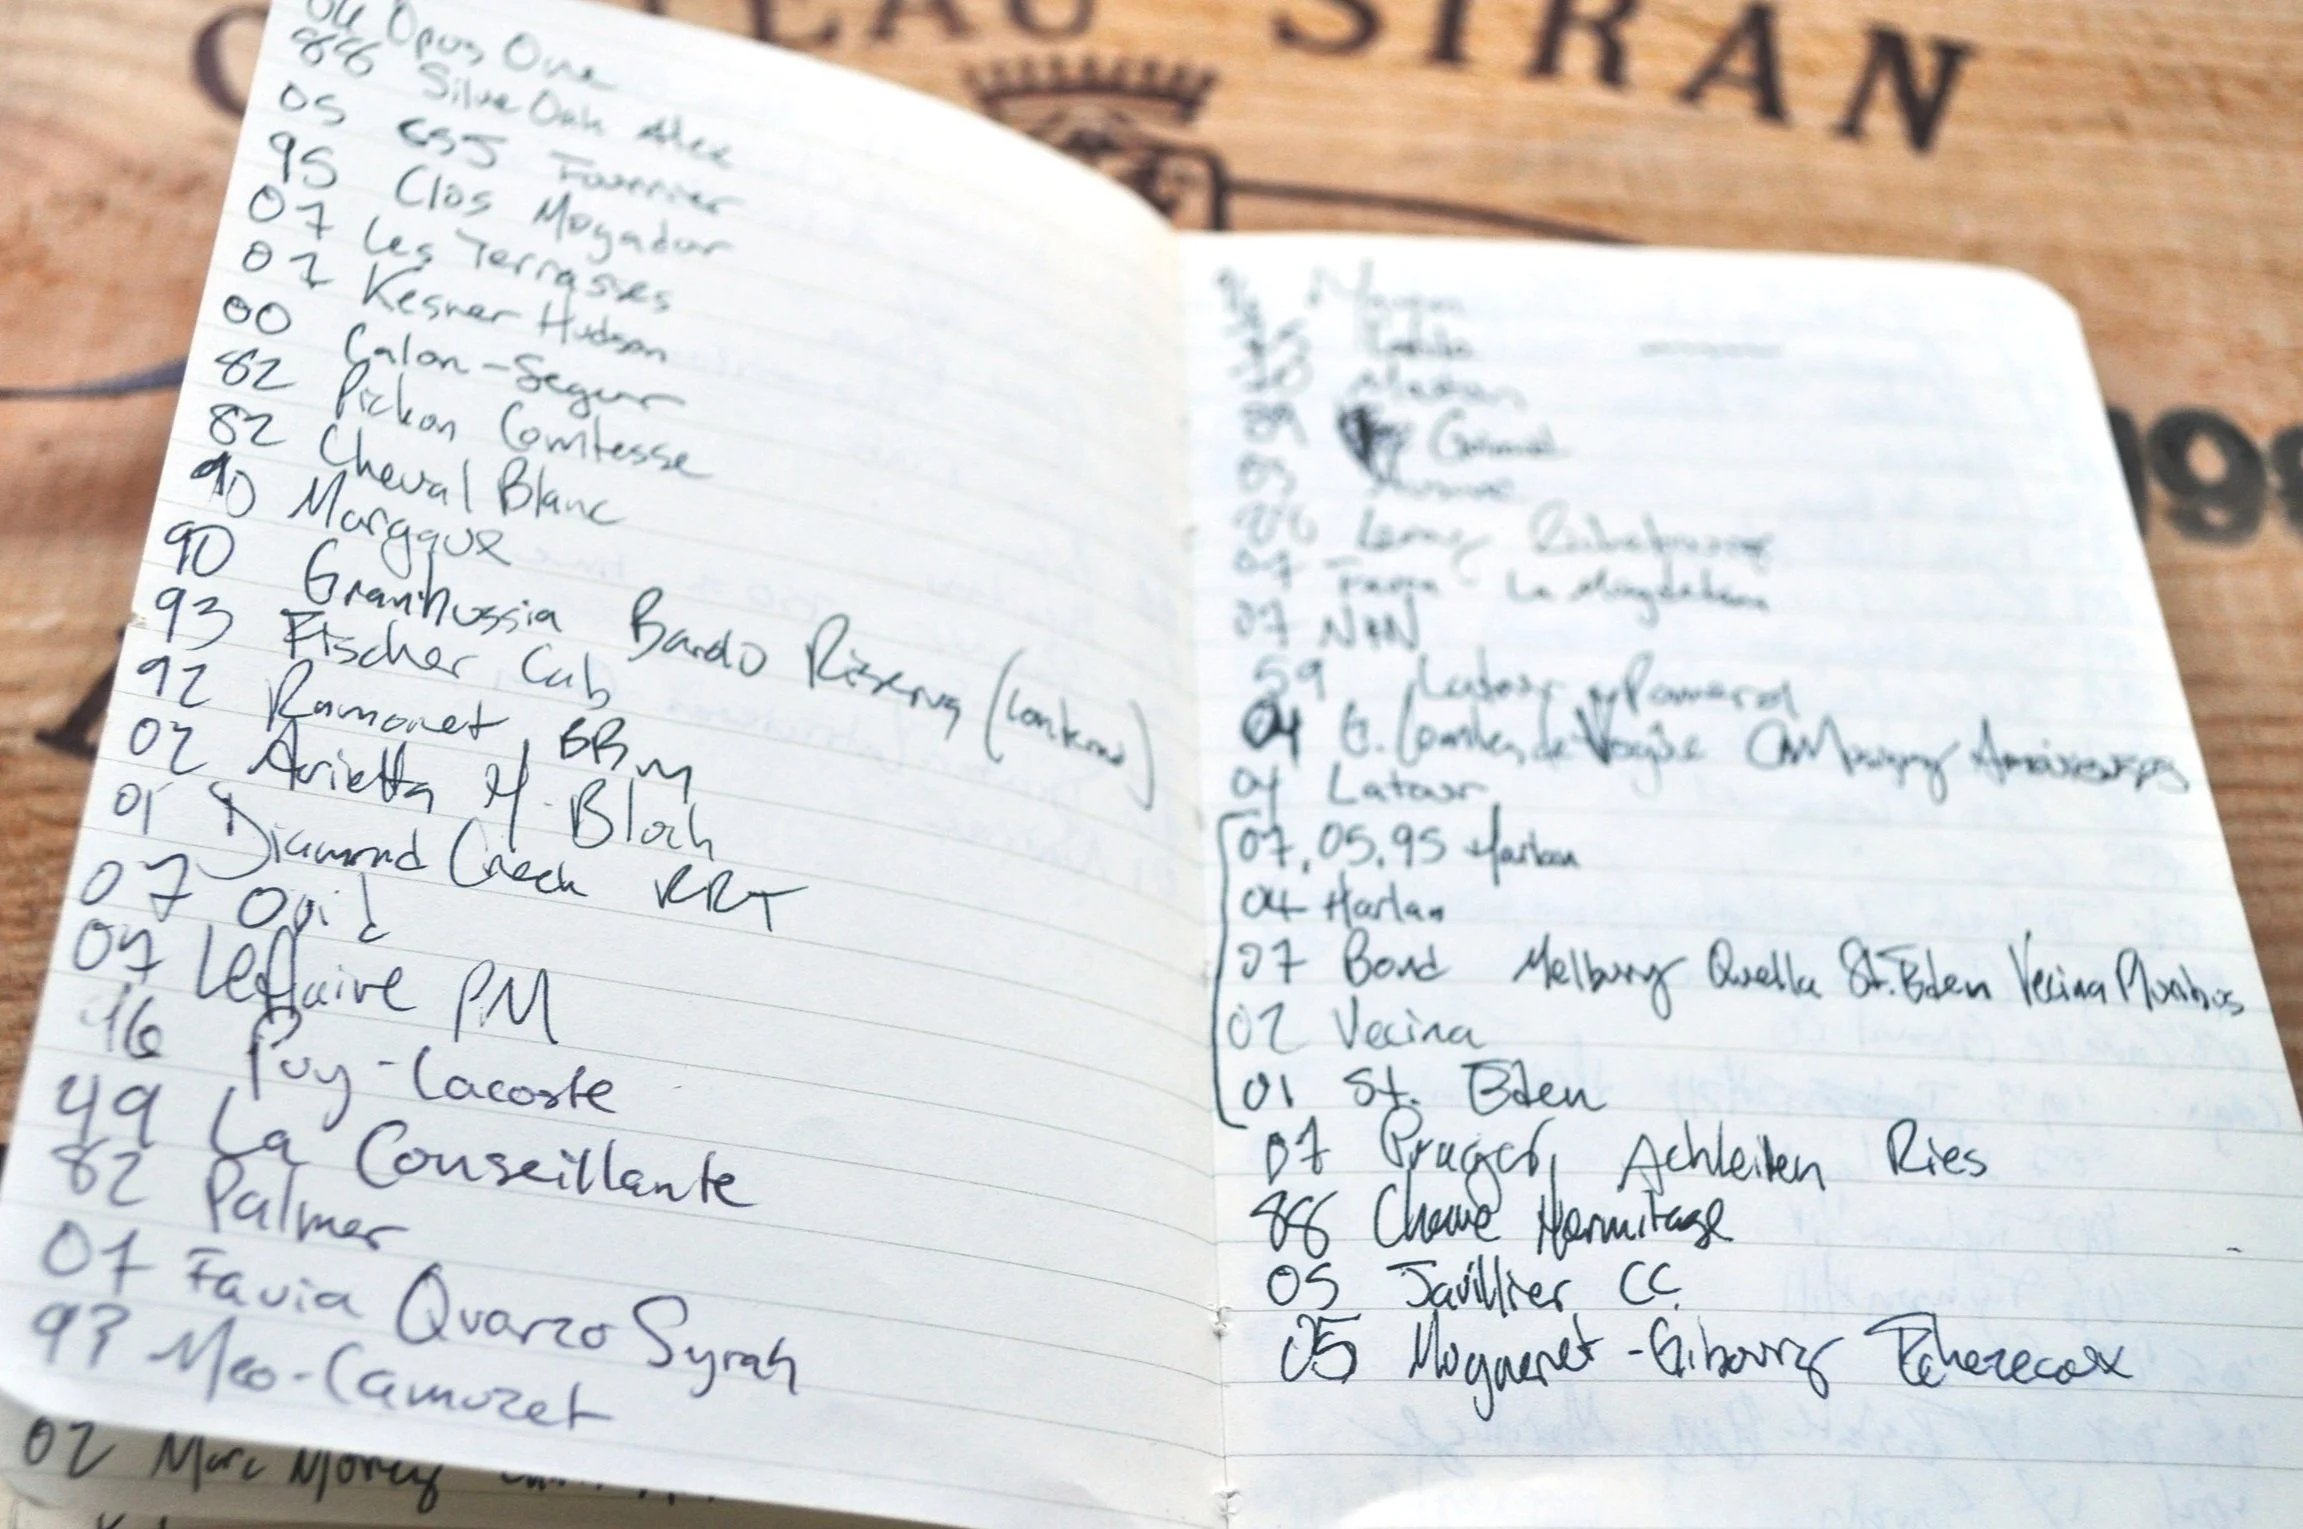 EAU SIRAN
198
Opus One
Silver Oak Alex
05 Fournier
95 Clos Mogador
07 Les Terrasses
07 Kesner Hudson
00 Calon-Segur
82 Pichon Comtesse
82 Cheval Blanc
90 Margaux
90 Bardo Riserva
93 Fischer Cab
92 Ramonet BBM
02 Arietta H. Block
01 Diamond Creek RRT
07 Ovid
07 Leflaive PM
Puy-Lacoste
49 La Conseillante
82 Palmer
07 Favia Quarzo Syrah
93 Meo-Camuzet
02 Marc Morey
89
07 La Magdelena
07
59 Latour Pomerol
04 G. Comtes de Vogüe Amoureuses
04 Latour
07, 05, 95 Harlan
04 Harlan
07 Bond Melbury Quella St. Eden Vecina Pluribus
02 Vecina
01 St. Eden
07 Prager, Achleiten Ries
88 Chave Hermitage
05 Javillier CC
05 Mugneret-Gibourg Echezeaux